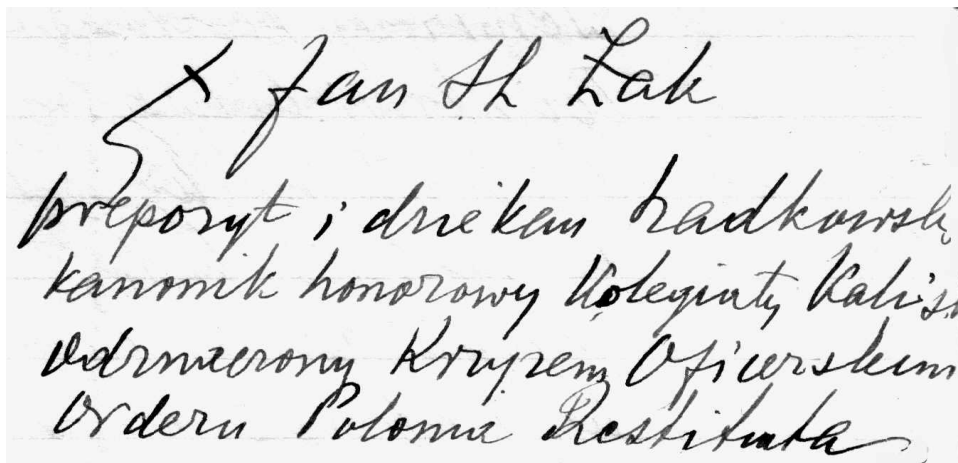 X Jan St Żak
prepozyt i dziekan
kanonik honorowy Kolegiaty Kalis
Odznaczony Krzyżem Oficerskim
Orderu Polonia Restituta